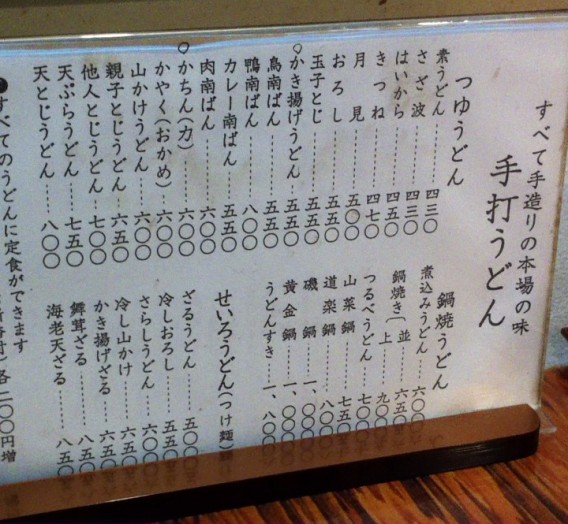 すべて手造りの本場の味
手打うどん
つゆうどん
素うどん………四三〇
さざ波………四三〇
はいから………四五〇
きつね………四七〇
月見………五〇〇
おろし………五五〇
玉子とじ………五五〇
かき揚げうどん…五五〇
鳥南ばん………五五〇
鴨南ばん………八〇〇
カレー南ばん…五五〇
肉南ばん………六〇〇
かちん(力)………六〇〇
かやく(おかめ)…六〇〇
山かけうどん……六〇〇
親子とじうどん…六五〇
他人とじうどん…七〇〇
天ぷらうどん……七五〇
天とじうどん……八〇〇
鍋焼うどん
煮込みうどん……六〇〇
鍋焼き(並………六五〇
上………九〇〇
つるべうどん……七〇〇
山菜鍋………七五〇
道楽鍋………八〇〇
磯鍋………一、〇〇〇
黄金鍋………一、〇〇〇
うどんすき…一、八〇〇
せいろうどん(つけ麺)
ざるうどん………五〇〇
冷しおろし………五五〇
さらしうどん……六〇〇
冷し山かけ………六五〇
かき揚げざる……六五〇
舞茸ざる………八五〇
海老天ざる………八五〇
すべてのうどんに定食ができます
各二〇〇円増